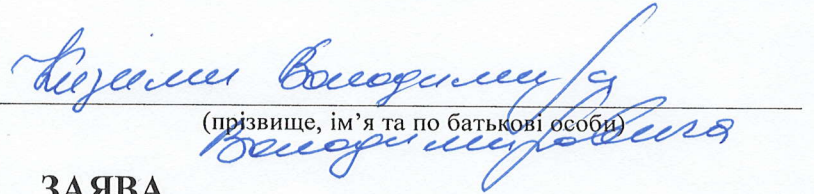 Кизими Володимира
(прізвище, ім’я та по батькові особи)
Володимировича
ЗАЯВА